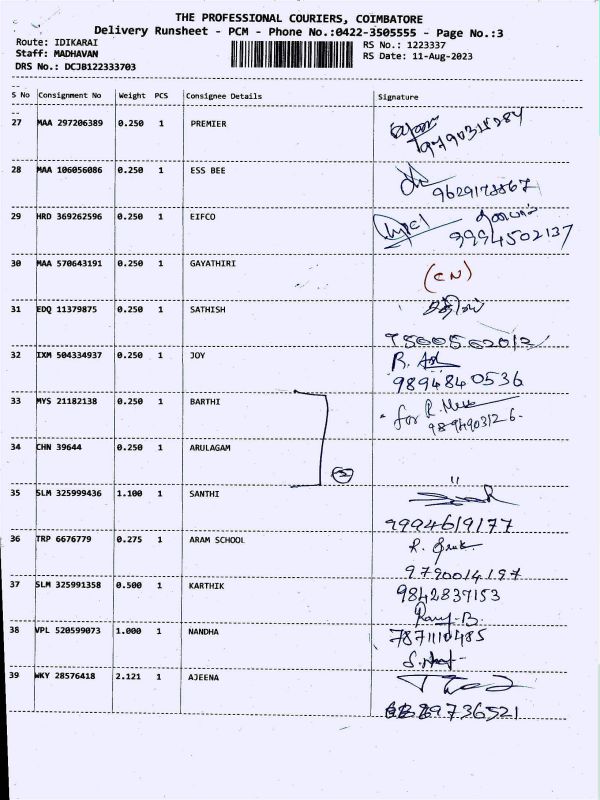 THE PROFESSIONAL COURIERS, COIMBATORE
Delivery Runsheet - PCM - Phone No.:0422-3505555 - Page No.:3
Route: IDIKARAI
RS No.: 1223337
Staff: MADHAVAN
RS Date: 11-Aug-2023
DRS No.: DCJB122333703
S No Consignment No Weight PCS Consignee Details Signature
27 MAA 297206389 0.250 1 PREMIER
28 MAA 106056086 0.250 1 ESS BEE
29 HRD 369262596 0.250 1 EIFCO
9994502137
30 MAA 570643191 0.250 1 GAYATHIRI (CN)
31 EDQ 11379875 0.250 1 SATHISH
32 IXM 504334937 0.250 1 JOY
9894840536
33 MYS 21182138 0.250 1 BARTHI
for R.
34 CHN 39644 0.250 1 ARULAGAM
35 SLM 325999436 1.100 1 SANTHI
9994619177
36 TRP 6676779 0.275 1 ARAM SCHOOL
9790014197
37 SLM 325991358 0.500 1 KARTHIK
9842837153
38 VPL 520599073 1.000 1 NANDHA
7871110485
39 WKY 28576418 2.121 1 AJEENA